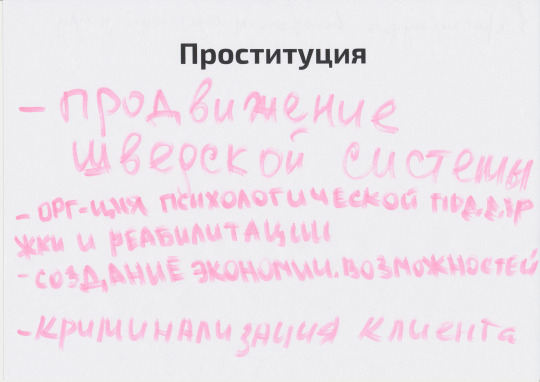 Проституция
– ПРОДВИЖЕНИЕ
ШВЕДСКОЙ СИСТЕМЫ
– ОРГ-ЦИЯ ПСИХОЛОГИЧЕСКОЙ ПОДДЕР
ЖКИ И РЕАБИЛИТАЦИИ
– СОЗДАНИЕ ЭКОНОМИ. ВОЗМОЖНОСТЕЙ
– КРИМИНАЛИЗАЦИЯ КЛИЕНТА